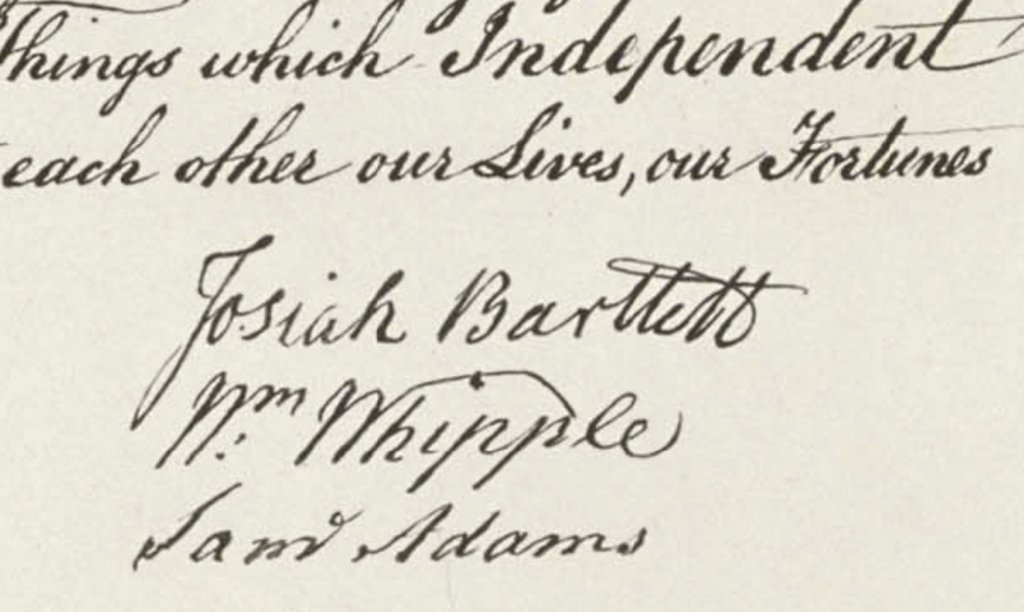 Things which Independent
each other our Lives, our Fortunes
Josiah Bartlett
Wm Whipple
Saml Adams